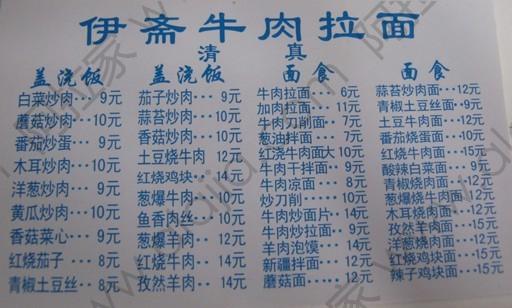 伊斋牛肉拉面
清 真
盖浇饭
白菜炒肉… 9元
蘑菇炒肉… 10元
番茄炒蛋… 9元
木耳炒肉… 10元
洋葱炒肉… 9元
黄瓜炒肉… 10元
香菇菜心… 9元
红烧茄子… 8元
青椒土豆丝… 8元
盖浇饭
茄子炒肉… 9元
蒜苔炒肉… 10元
香菇炒肉… 10元
土豆烧牛肉 12元
红烧鸡块… 14元
葱爆牛肉… 10元
鱼香肉丝… 10元
葱爆羊肉… 12元
红烧牛肉… 14元
孜然羊肉… 14元
面食
牛肉拉面… 6元
加肉拉面… 11元
牛肉刀削面… 7元
葱油拌面… 7元
红浇牛肉面大10元
牛肉干拌面… 9元
牛肉凉面… 8元
炒刀削… 10元
牛肉炒面片… 14元
牛肉炒拉面… 9元
羊肉泡馍… 14元
新疆拌面… 12元
蘑菇面…… 12元
面食
蒜苔炒肉面… 12元
青椒土豆丝面… 9元
土豆牛肉面… 12元
番茄烧蛋面… 10元
红烧牛肉面… 15元
酸辣白菜面… 9元
青椒烧肉面… 12元
葱爆烧牛肉面 12元
木耳烧肉面… 12元
孜然羊肉面… 15元
洋葱烧肉面… 12元
红烧鸡块面… 15元
辣子鸡块面… 15元